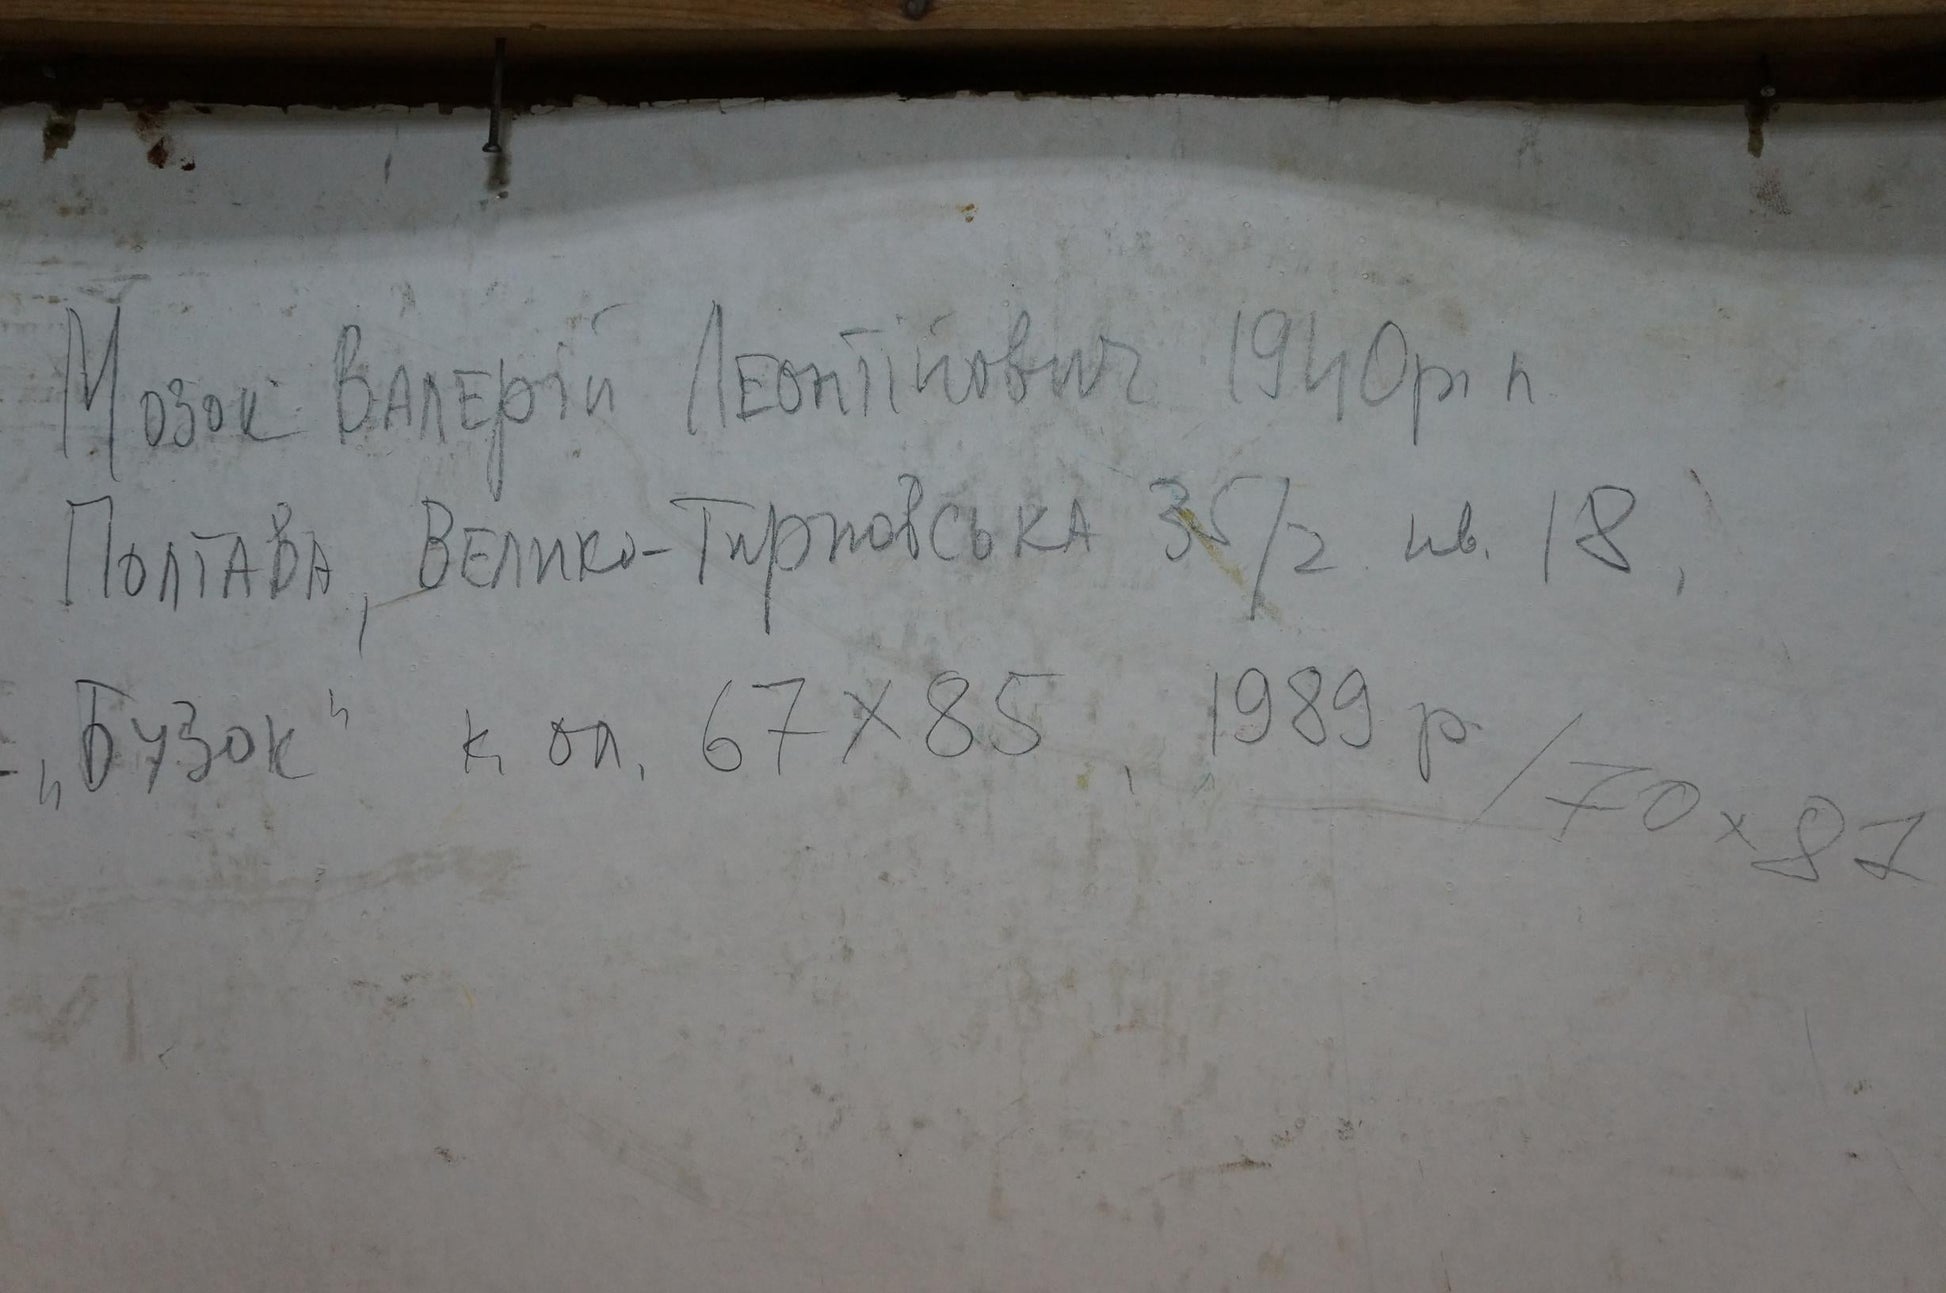 Мозок Валерій Леонтійович 1940 р. н.
Полтава, Велико-Тирновська 35/2 кв. 18,
„Бузок" к. ол. 67х85, 1989 р. / 70х87